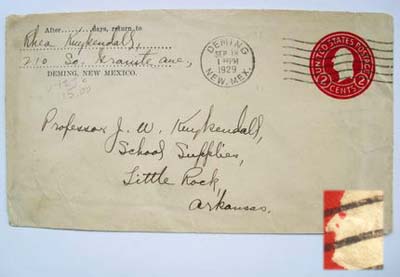 After......days, return to
Rhea Kuykendall,
210 So. Granite ave.,
DEMING, NEW MEXICO.
15.00
DEMING
SEP 18
1 PM
1929
NEW. MEX.
UNITED STATES POSTAGE
2 CENTS 2
Professor J. W. Kuykendall,
School Supplies,
Little Rock,
Arkansas.